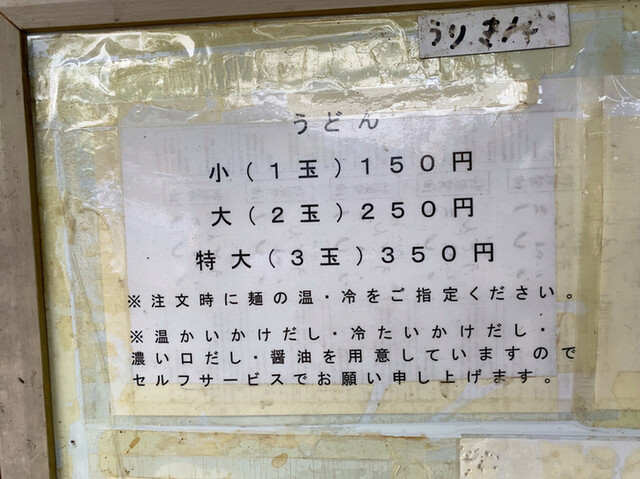 うりきれ
うどん
小(1玉)150円
大(2玉)250円
特大(3玉)350円
※注文時に麺の温・冷をご指定ください。
※温かいかけだし・冷たいかけだし・
濃い口だし・醤油を用意していますので
セルフサービスでお願い申し上げます。